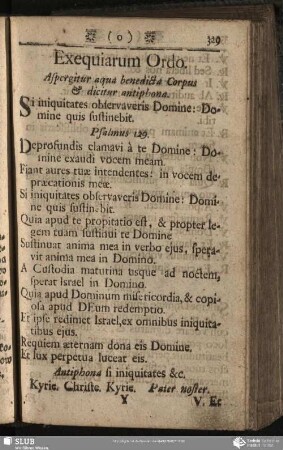 (0) 329
Exequiarum Ordo.
Aspergitur aqua benedicta Corpus
& dicitur antiphona.
Si iniquitates observaveris Domine: Do-
mine quis sustinebit.
Psalmus 129.
Deprofundis clamavi à te Domine: Do-
mine exaudi vocem meam.
Fiant aures tuæ intendentes: in vocem de-
præcationis meæ.
Si iniquitates observaveris Domine: Domi-
ne quis sustin-bit.
Quia apud te propitatio est, & propter le-
gem tuam sustinui te Domine
Sustinuat anima mea in verbo ejus, spera-
vit anima mea in Domino.
A Costodia maturina usque ad noctem,
sperat Israel in Domino.
Quia apud Dominum misericordia, & copi-
osa apud DEum redemptio.
Et ipse redimet Israel, ex omnibus iniquita-
tibus ejus.
Requiem æternam dona eis Domine.
Et lux perpetua luceat eis.
Antiphona si iniquitates &c.
Kyrie. Christe. Kyrie. Pater noster.
Y V. Et
SLUB